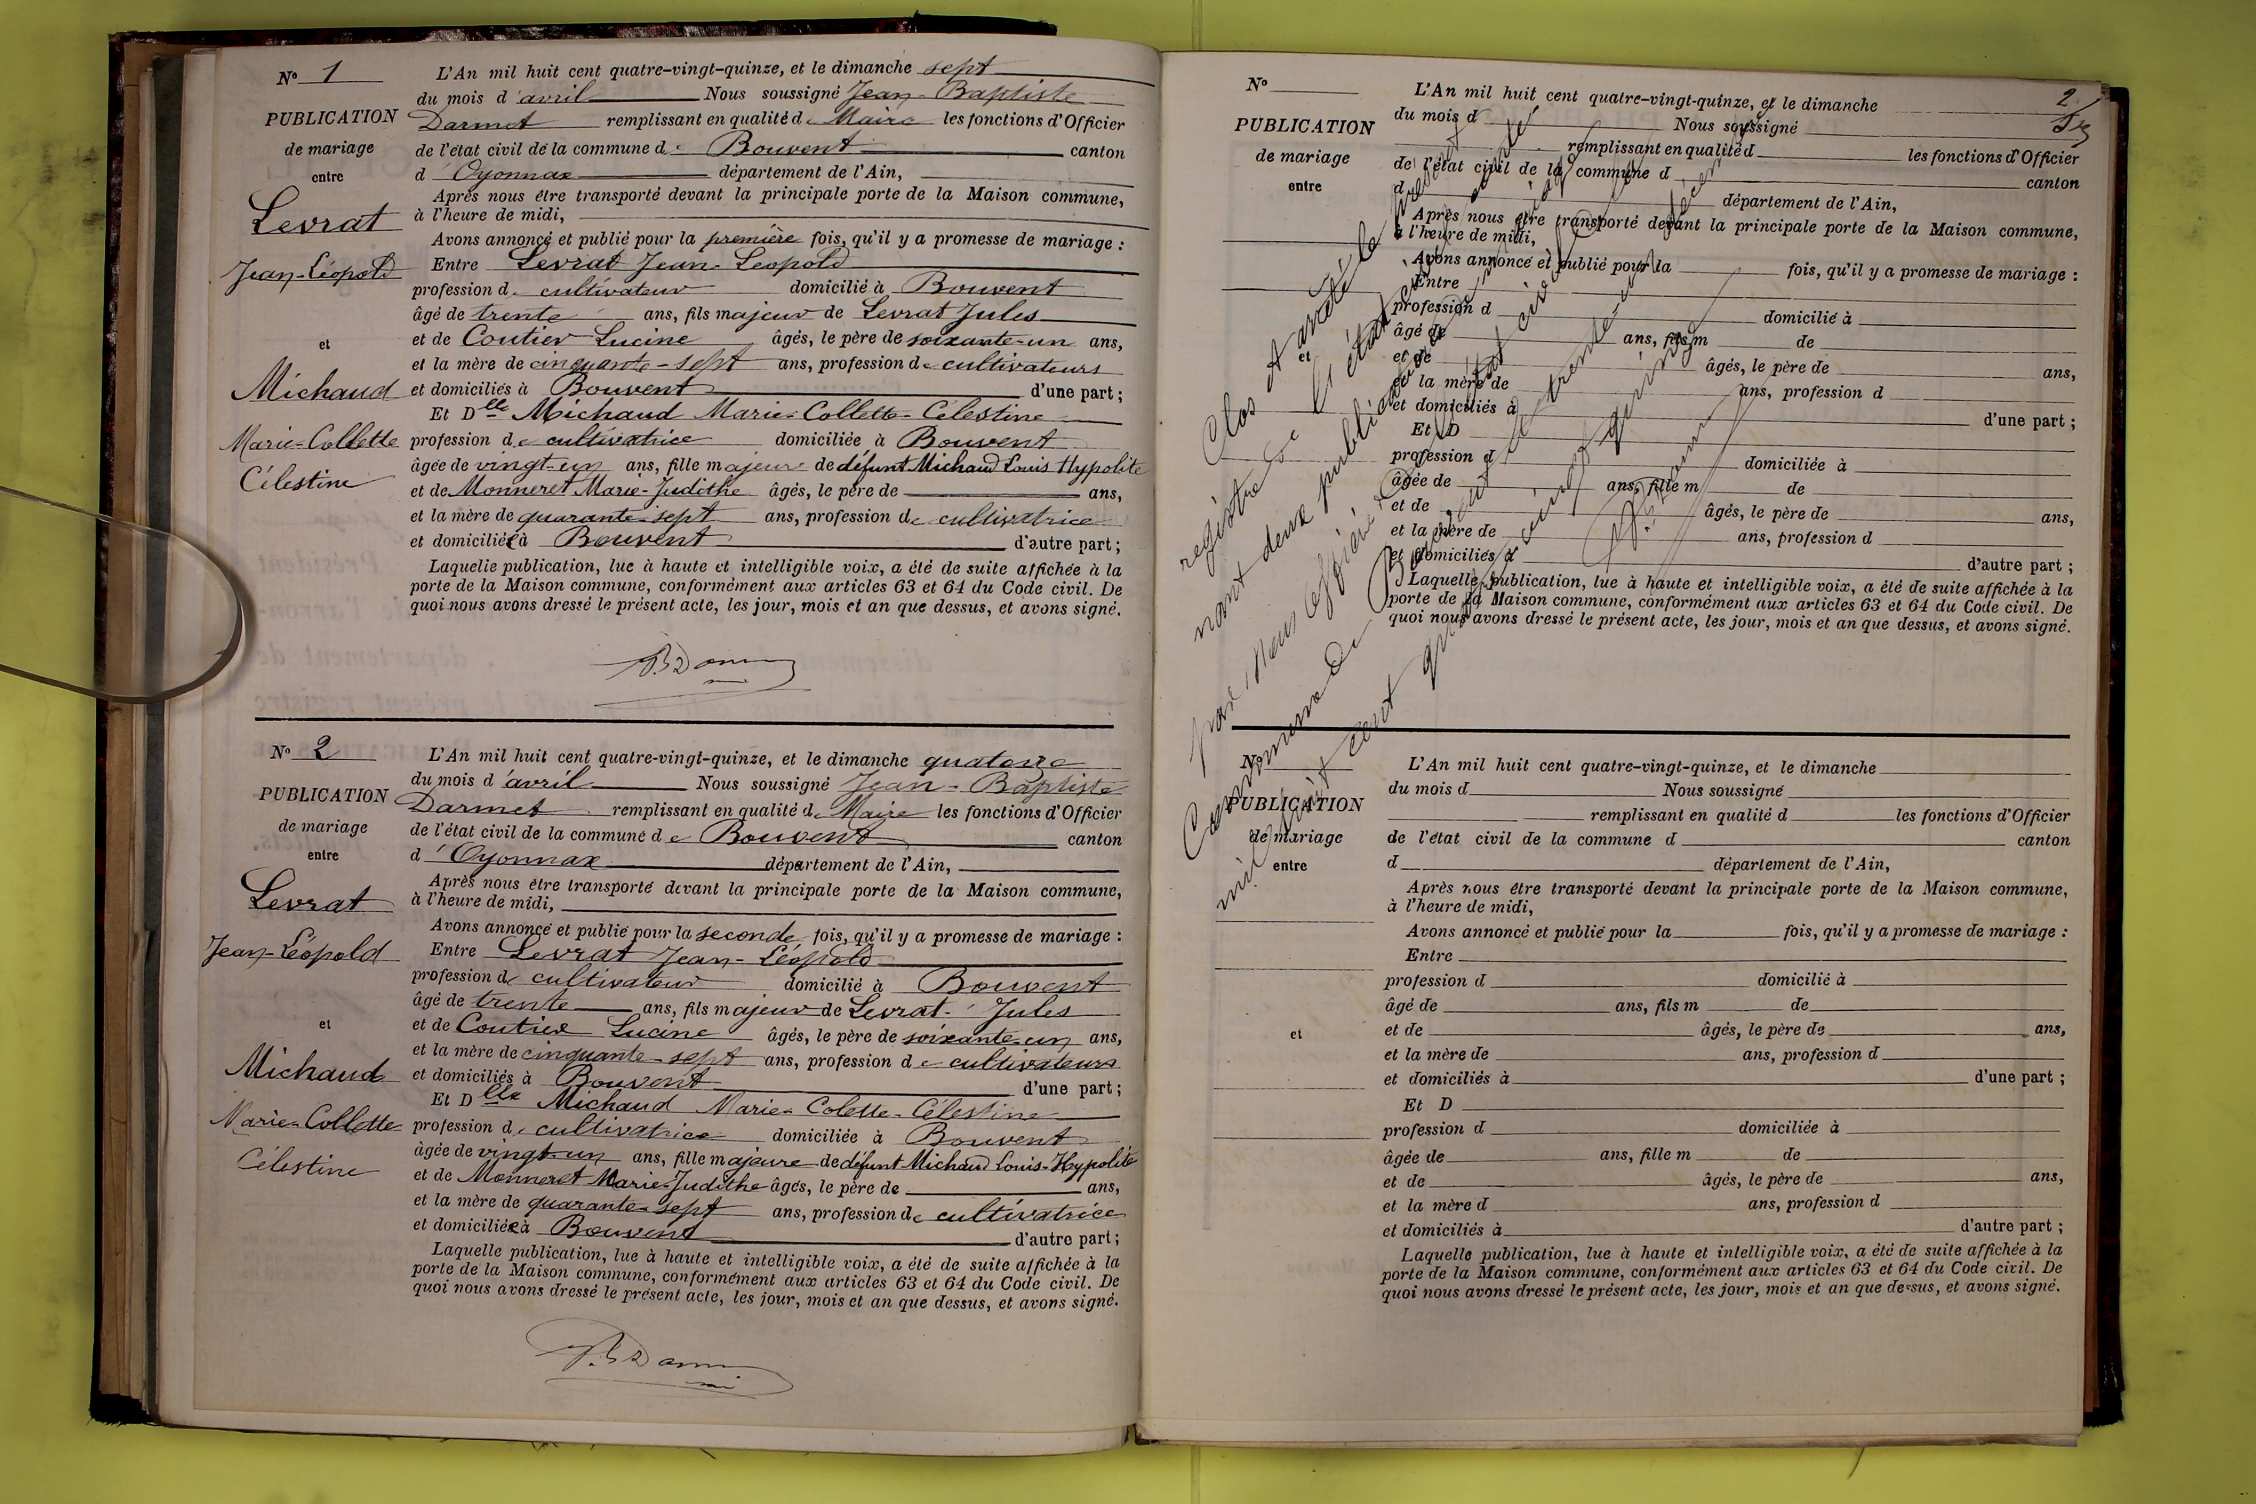 N° 1
PUBLICATION
de mariage
entre
Levrat
Jean-Léopold
et
Michaud
Marie-Collette
Célestine
L'An mil huit cent quatre-vingt-quinze, et le dimanche sept
du mois d'avril Nous soussigné Jean-Baptiste
Darmet remplissant en qualité de Maire les fonctions d'Officier
de l'état civil de la commune de Bouvent canton
d'Oyonnax département de l'Ain,
Après nous être transporté devant la principale porte de la Maison commune,
à l'heure de midi,
Avons annoncé et publié pour la première fois, qu'il y a promesse de mariage :
Entre Levrat Jean-Léopold
profession de cultivateur domicilié à Bouvent
âgé de trente ans, fils majeur de Levrat Jules
et de Coutier Lucine âgés, le père de soixante-un ans,
et la mère de cinquante-sept ans, profession de cultivateurs
et domiciliés à Bouvent d'une part ;
Et Dlle Michaud Marie-Collette-Célestine
profession de cultivatrice domiciliée à Bouvent
âgée de vingt-un ans, fille majeure de défunt Michaud Louis Hypolite
et de Monneret Marie-Judithe âgés, le père de ans,
et la mère de quarante-sept ans, profession de cultivatrice
et domiciliée à Bouvent d'autre part ;
Laquelle publication, lue à haute et intelligible voix, a été de suite affichée à la
porte de la Maison commune, conformément aux articles 63 et 64 du Code civil. De
quoi nous avons dressé le présent acte, les jour, mois et an que dessus, et avons signé.
N° 2
PUBLICATION
de mariage
entre
Levrat
Jean-Léopold
et
Michaud
Marie-Collette
Célestine
L'An mil huit cent quatre-vingt-quinze, et le dimanche quatorze
du mois d'avril Nous soussigné Jean-Baptiste
Darmet remplissant en qualité de Maire les fonctions d'Officier
de l'état civil de la commune de Bouvent canton
d'Oyonnax département de l'Ain,
Après nous être transporté devant la principale porte de la Maison commune,
à l'heure de midi,
Avons annoncé et publié pour la seconde fois, qu'il y a promesse de mariage :
Entre Levrat Jean-Léopold
profession de cultivateur domicilié à Bouvent
âgé de trente ans, fils majeur de Levrat Jules
et de Coutier Lucine âgés, le père de soixante-un ans,
et la mère de cinquante-sept ans, profession de cultivateurs
et domiciliés à Bouvent d'une part ;
Et Dlle Michaud Marie-Colette-Célestine
profession de cultivatrice domiciliée à Bouvent
âgée de vingt-un ans, fille majeure de défunt Michaud Louis-Hypolite
et de Monneret Marie-Judithe âgés, le père de ans,
et la mère de quarante-sept ans, profession de cultivatrice
et domiciliée à Bouvent d'autre part ;
Laquelle publication, lue à haute et intelligible voix, a été de suite affichée à la
porte de la Maison commune, conformément aux articles 63 et 64 du Code civil. De
quoi nous avons dressé le présent acte, les jour, mois et an que dessus, et avons signé.
2
N°
PUBLICATION
de mariage
entre
et
L'An mil huit cent quatre-vingt-quinze, et le dimanche
du mois d Nous soussigné
remplissant en qualité d les fonctions d'Officier
de l'état civil de la commune d canton
d département de l'Ain,
Après nous être transporté devant la principale porte de la Maison commune,
à l'heure de midi,
Avons annoncé et publié pour la fois, qu'il y a promesse de mariage :
Entre
profession d domicilié à
âgé de ans, fils m de
et de âgés, le père de ans,
et la mère de ans, profession d
et domiciliés à d'une part ;
Et D
profession d domiciliée à
âgée de ans, fille m de
et de âgés, le père de ans,
et la mère de ans, profession d
et domiciliés à d'autre part ;
Laquelle publication, lue à haute et intelligible voix, a été de suite affichée à la
porte de la Maison commune, conformément aux articles 63 et 64 du Code civil. De
quoi nous avons dressé le présent acte, les jour, mois et an que dessus, et avons signé.
Clos et arrêté le présent
registre de l'état civil
nant deux publications de mariage
par Nous officier de l'état civil de la
Commune de Bouvent le trente un décembre
mil huit cent quatre vingt quinze
N°
PUBLICATION
de mariage
entre
et
L'An mil huit cent quatre-vingt-quinze, et le dimanche
du mois d Nous soussigné
remplissant en qualité d les fonctions d'Officier
de l'état civil de la commune d canton
d département de l'Ain,
Après nous être transporté devant la principale porte de la Maison commune,
à l'heure de midi,
Avons annoncé et publié pour la fois, qu'il y a promesse de mariage :
Entre
profession d domicilié à
âgé de ans, fils m de
et de âgés, le père de ans,
et la mère de ans, profession d
et domiciliés à d'une part ;
Et D
profession d domiciliée à
âgée de ans, fille m de
et de âgés, le père de ans,
et la mère d ans, profession d
et domiciliés à d'autre part ;
Laquelle publication, lue à haute et intelligible voix, a été de suite affichée à la
porte de la Maison commune, conformément aux articles 63 et 64 du Code civil. De
quoi nous avons dressé le présent acte, les jour, mois et an que dessus, et avons signé.